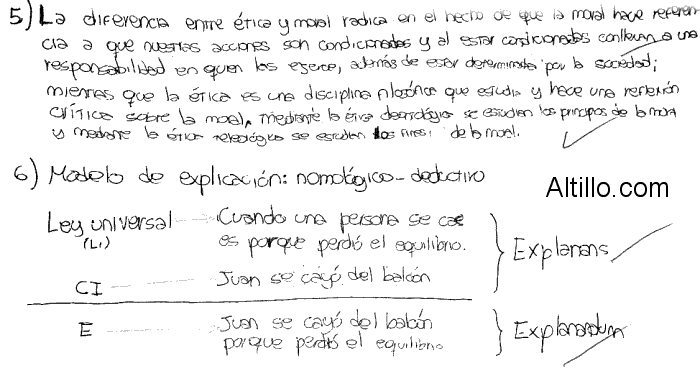 5) La diferencia entre ética y moral radica en el hecho de que la moral hace referen-
cia a que nuestras acciones son condicionadas y al estar condicionadas conllevan a una
responsabilidad en quien las ejerce, además de estar determinada por la sociedad;
mientras que la ética es una disciplina filosófica que estudia y hace una reflexión
crítica sobre la moral, mediante la ética deontológica se estudian los principios de la moral
y mediante la ética teleológica se estudian los fines de la moral.
6) Modelo de explicación: nomológico-deductivo
Altillo.com
Ley universal Cuando una persona se cae
(L1) es porque perdió el equilibrio.
Explanans
CI Juan se cayó del balcón
E Juan se cayó del balcón
porque perdió el equilibrio
Explanandum